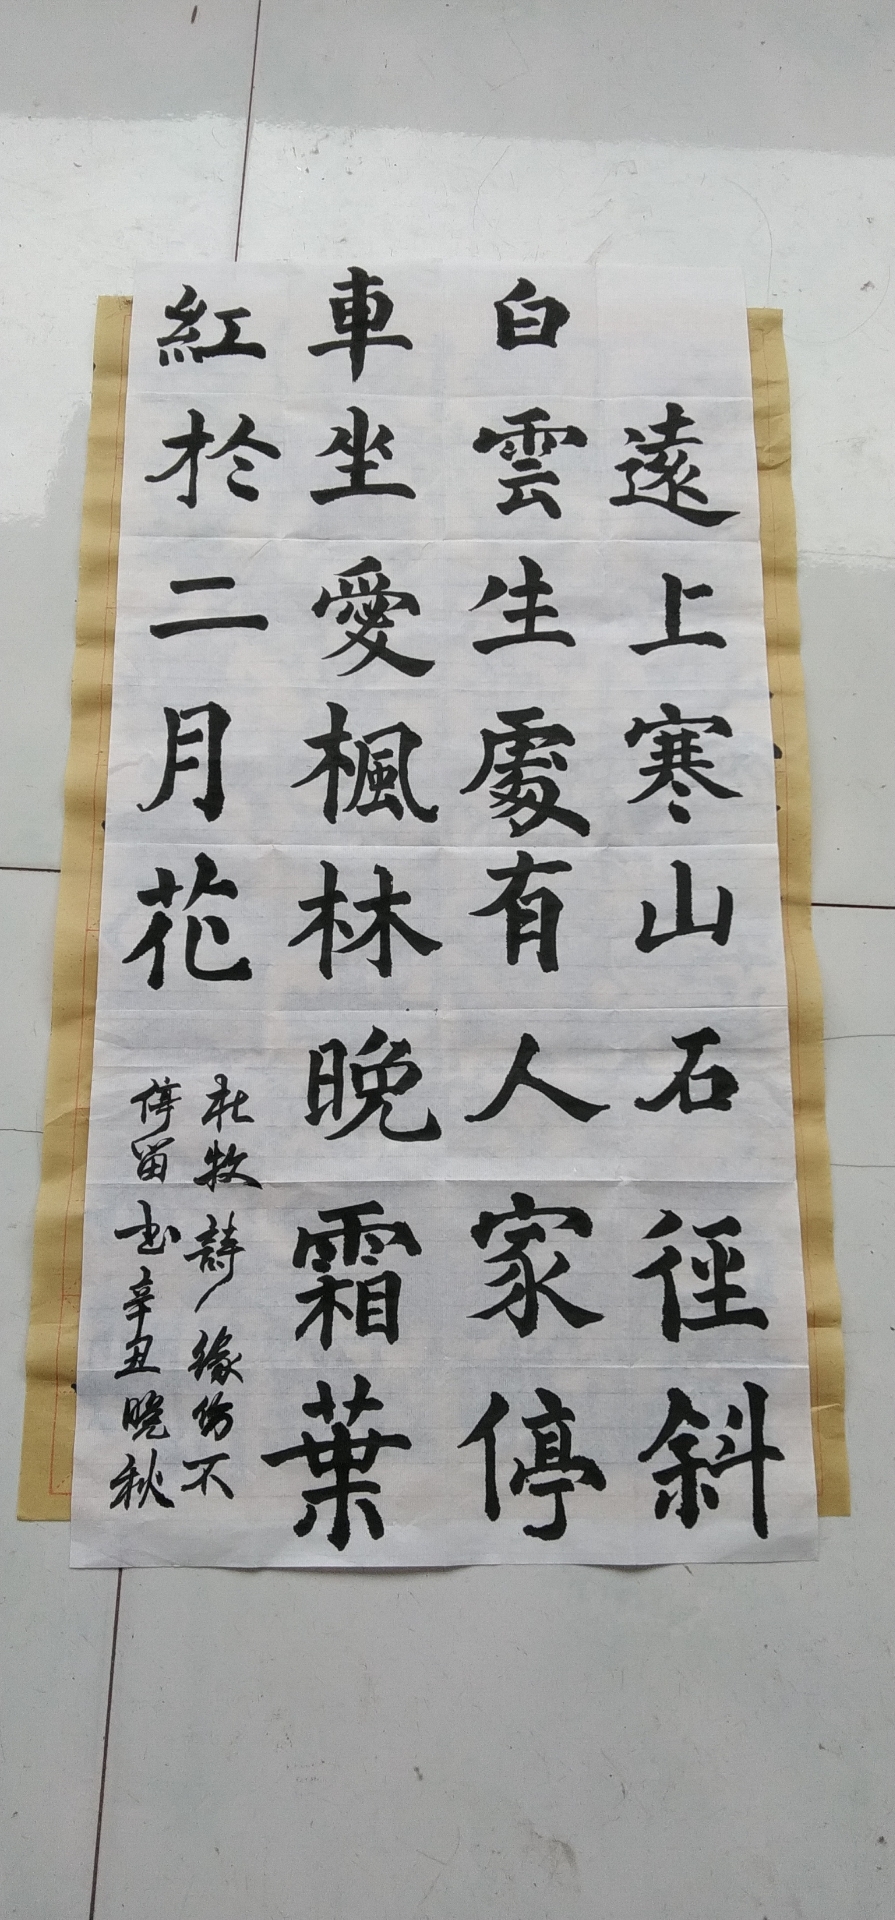 遠上寒山石徑斜
白雲生處有人家停
車坐愛楓林晚霜葉
紅於二月花
杜牧詩緣份不
停留书辛丑晚秋